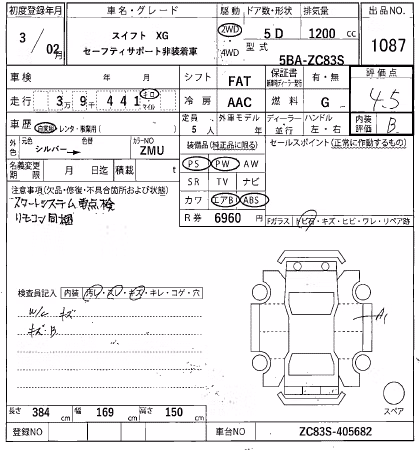 初度登録年月
車名・グレード
駆動 ドア数・形状 排気量
出品NO.
3 / 02月
スイフト XG
セーフティサポート非装着車
2WD
4WD
5D 1200 cc
型式
5BA-ZC83S
1087
車検 年 月
シフト FAT
保証書 有・無
評価点
4.5
走行 3万9千441 キロ マイル
冷房 AAC
燃料 G
車歴 自家用 レンタ・
定員 5人
外車モデル 年
ディーラー 並行
ハンドル 左・右
内装評価 B
外色 元色 シルバー 色替 カラーNO ZMU
装備品(純正品に限る)
セールスポイント(正常に作動するもの)
名義変更期限 月 日迄 積載 t
PS PW AW
SR TV ナビ
カワ エアB ABS
R券 6960 円
注意事項(欠品・修復・不具合箇所および状態)
スマートシステム要点検
リモコン同梱
Fガラス トビ石・キズ・ヒビ・ワレ・リペア跡
検査員記入 内装 汚レ・スレ・キズ・キレ・コゲ・穴
W/C キズ
キズB
A1
スペア
長さ 384 cm 幅 169 cm 高さ 150 cm
登録NO
車台NO ZC83S-405682